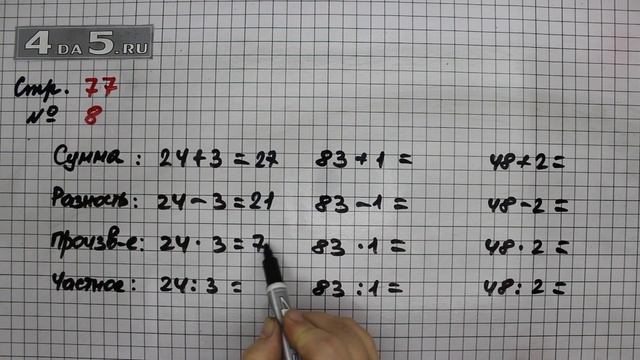 4 DA 5.RU
Стр. 77
№ 8
Сумма: 24+3=27 83+1= 48+2=
Разность: 24-3=21 83-1= 48-2=
Произв-е: 24·3=7 83·1= 48·2=
Частное: 24:3= 83:1= 48:2=